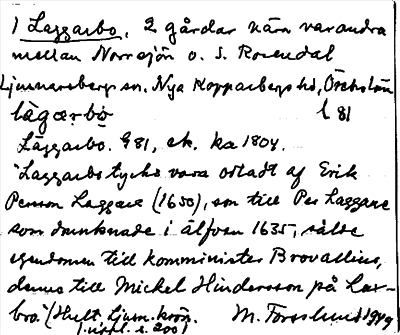 1 Laggarbo, 2 gårdar nära varandra
mellan Norrsjön o. S. Rosendal
Ljusnarsbergs sn, Nya Kopparbergs hd, Örebro län
lågærbo l 81
Laggarbo. G81, ek. ka 1804.
"Laggarbo tycks vara odladt af Erik
Persson Laggare (1650), son till Per Laggare
som drunknade i älfven 1635, sålde
egendomen till komminister Brovallius,
denne till Mickel Hindersson på Lax-
bro." (Hult. Ljusn. krön.
1. uppl. s. 200) M. Forsslund 1949